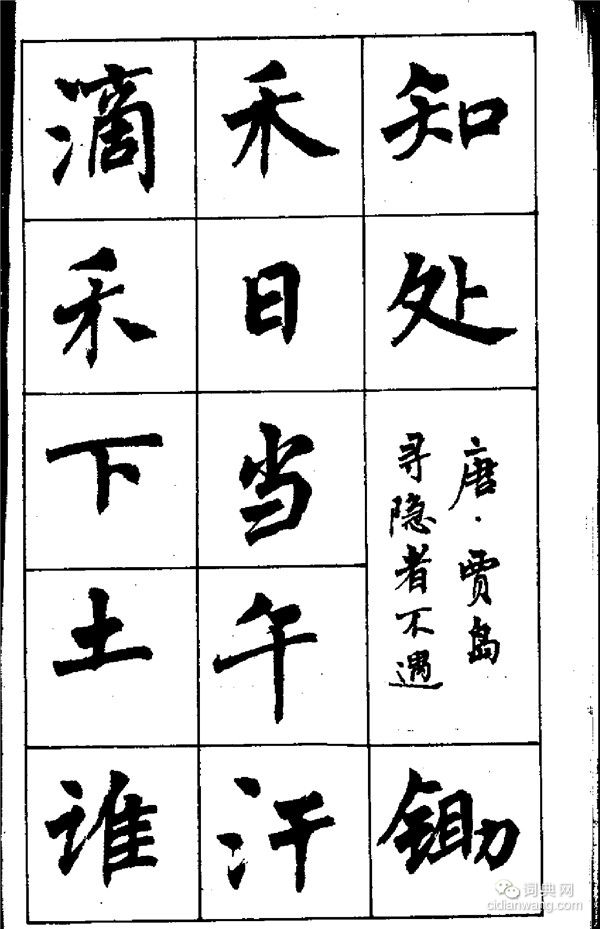 知处
唐·贾岛
寻隐者不遇
锄
禾日当午汗
滴禾下土谁
词典网
cidianwang.com